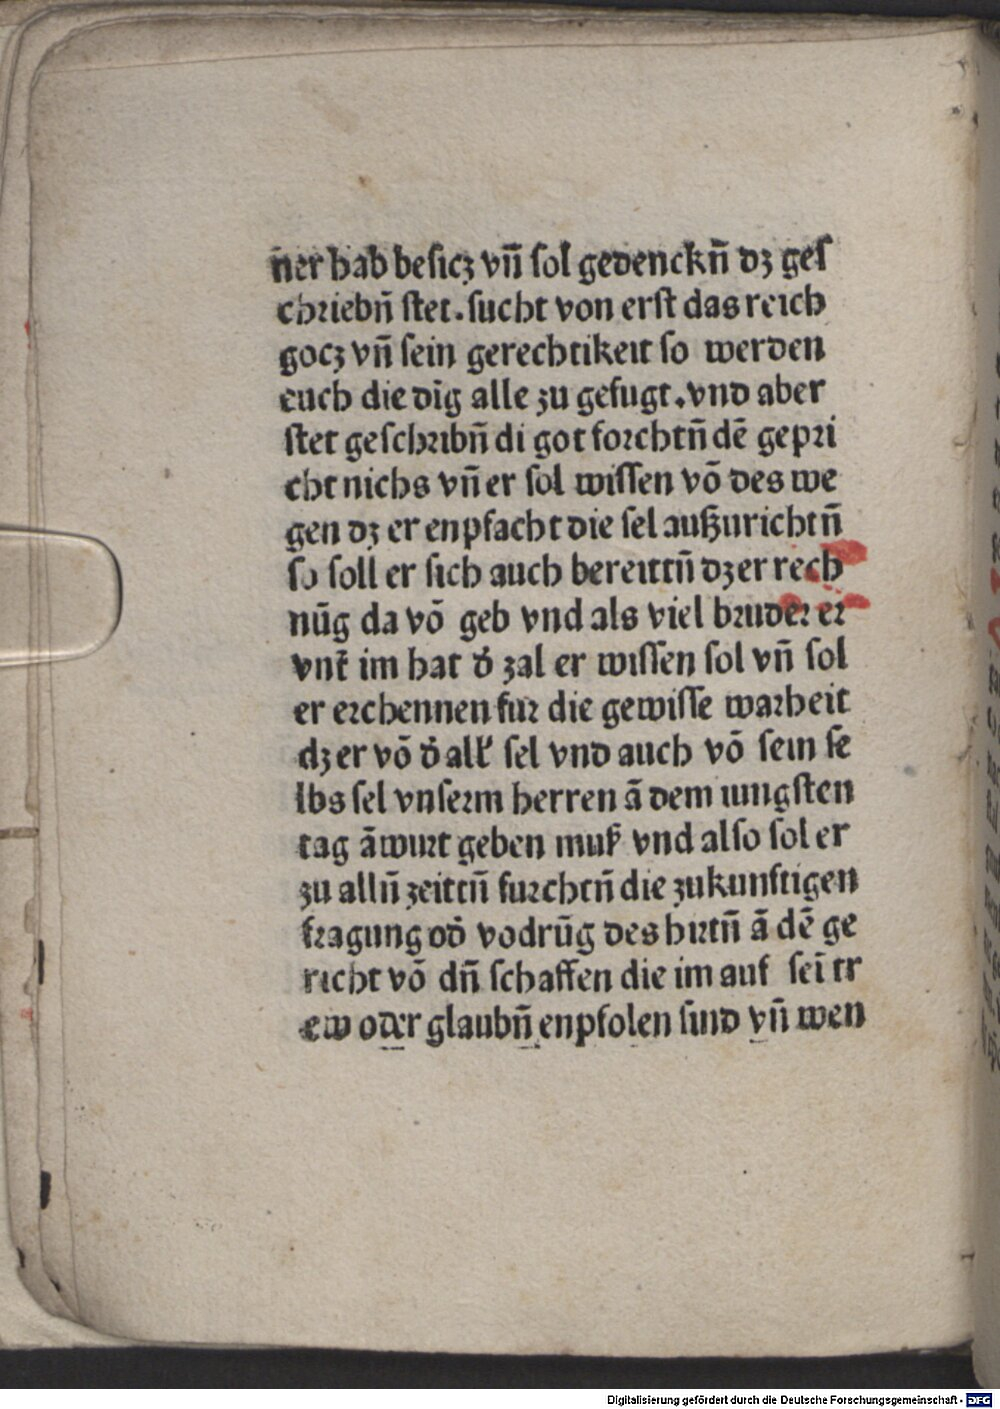 n̄er hab besicz vn̄ sol gedenckn̄ dz ges
chriebn̄ stet. sucht von erst das reich
gocz vn̄ sein gerechtikeit so werden
euch die dīg alle zu gefugt. vnd aber
stet geschribn̄ di got forchtn̄ dē gepri
cht nichs vn̄ er sol wissen vō des we
gen dz er enpfacht die sel außzurichtn̄
so soll er sich auch bereittn̄ dz er rech
nūg da vō geb vnd als viel bruder er
vnt̄ im hat d̄ zal er wissen sol vn̄ sol
er erchennen fur die gewisse warheit
dz er vō d̄ all̄ sel vnd auch vō sein se
lbs sel vnserm herren ā dem iungsten
tag ātwurt geben muß vnd also sol er
zu alln̄ zeittn̄ furchtn̄ die zukunftigen
fragung od̄ vodrūg des hirtn̄ ā dē ge
richt vō dn̄ schaffen die im auf seī tr
ew oder glaubn̄ enpfolen sind vn̄ wen
Digitalisierung gefördert durch die Deutsche Forschungsgemeinschaft - DFG